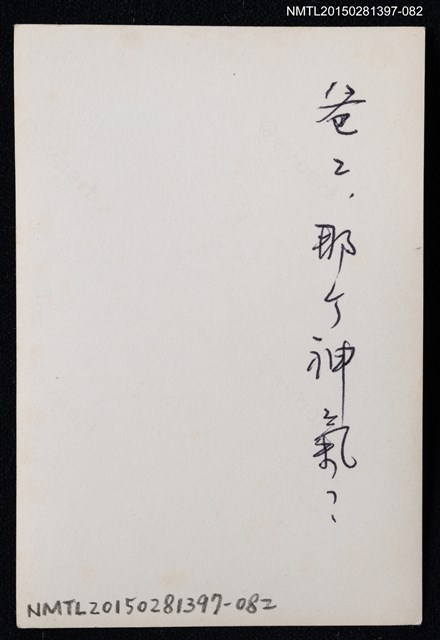 NMTL20150281397-082
爸々，那ケ神氣？
NMTL20150281397-082